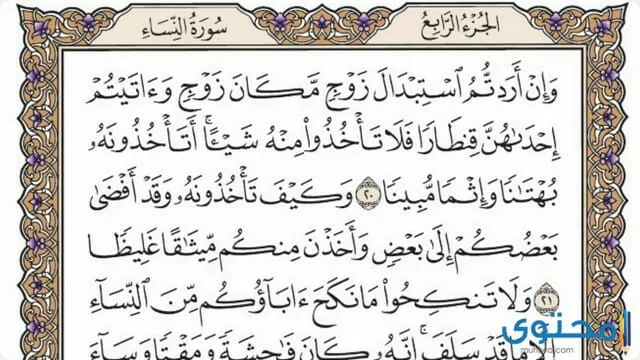 الجزء الرابع
سورة النساء
وَإِنْ أَرَدتُّمُ ٱسْتِبْدَالَ زَوْجٍ مَّكَانَ زَوْجٍ وَءَاتَيْتُمْ
إِحْدَىٰهُنَّ قِنطَارًا فَلَا تَأْخُذُوا۟ مِنْهُ شَيْـًٔا ۚ أَتَأْخُذُونَهُۥ
بُهْتَـٰنًا وَإِثْمًا مُّبِينًا ٢٠ وَكَيْفَ تَأْخُذُونَهُۥ وَقَدْ أَفْضَىٰ
بَعْضُكُمْ إِلَىٰ بَعْضٍ وَأَخَذْنَ مِنكُم مِّيثَـٰقًا غَلِيظًا
٢١ وَلَا تَنكِحُوا۟ مَا نَكَحَ ءَابَآؤُكُم مِّنَ ٱلنِّسَآءِ
قَدْ سَلَفَ ۚ إِنَّهُۥ كَانَ فَـٰحِشَةً وَمَقْتًا وَسَآءَ
محتوى